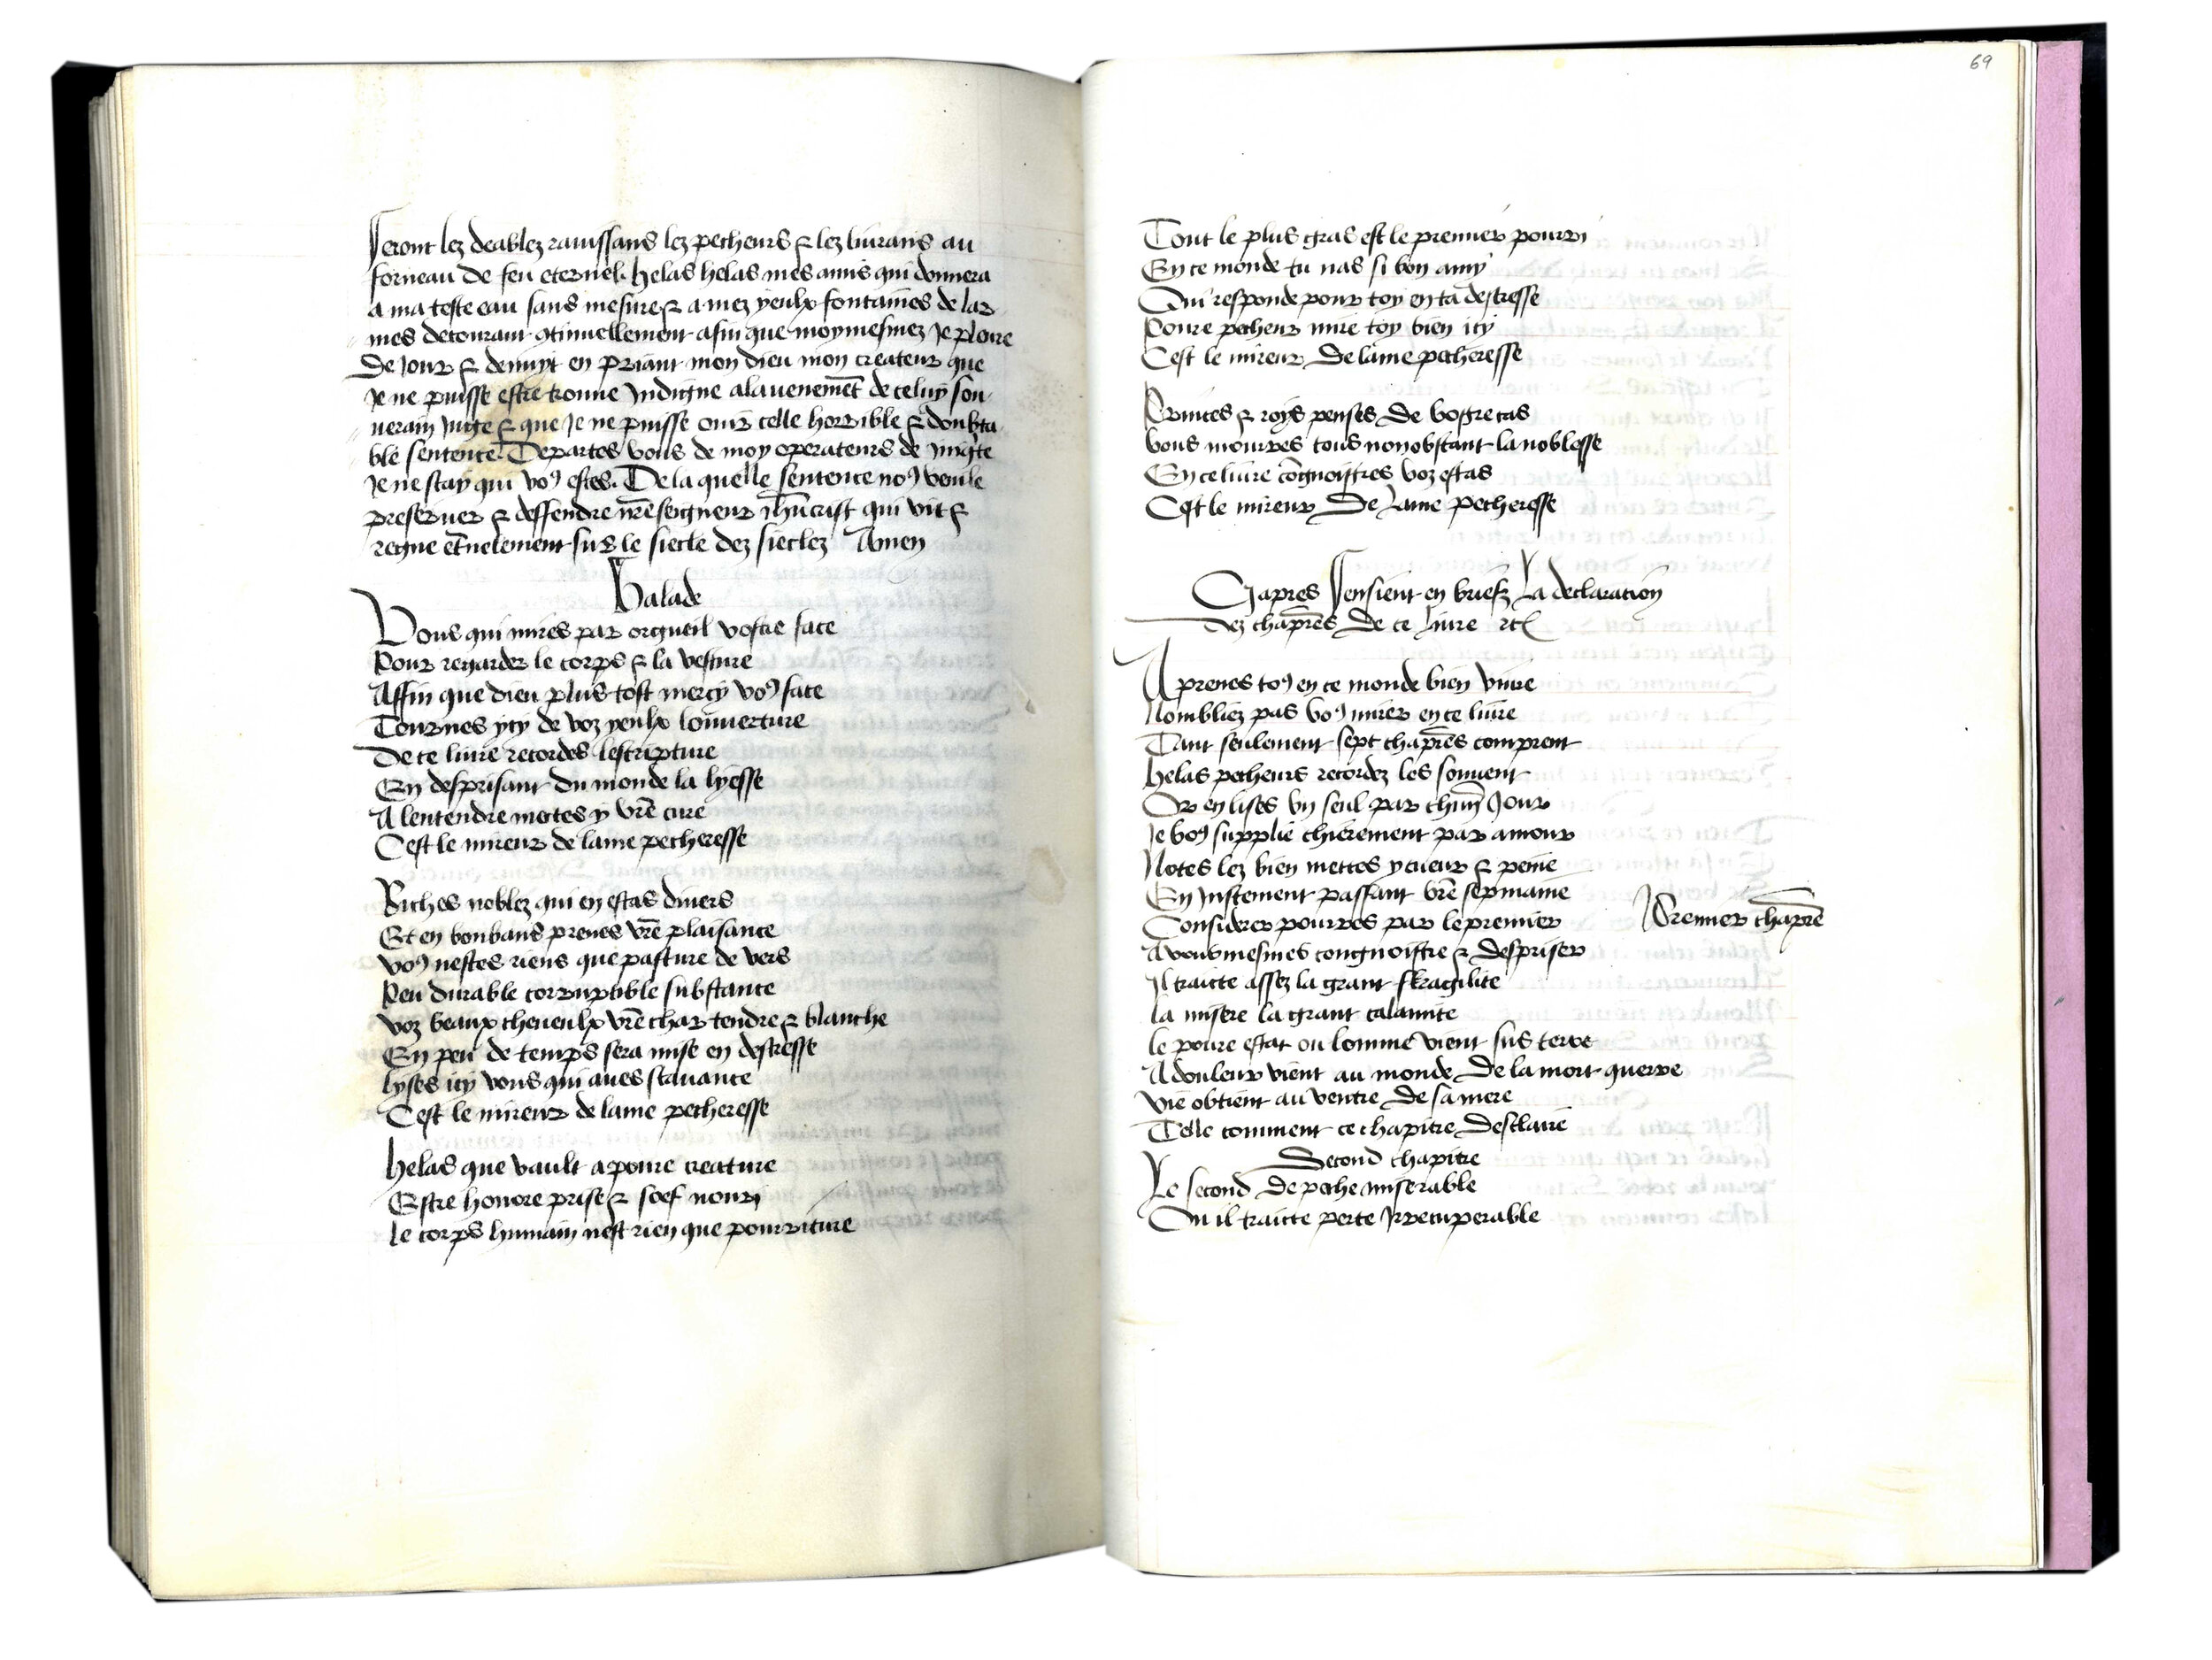 Seront lez deablez rauissans lez pecheurs & lez liurans au
forneau de feu eternel. helas helas mes amis qui donnera
a ma teste eau sans mesure & a mez yeulx fontaines de lar
mes decourant 9tinuellement afin que moymesmez Je ploure
de Jour & de nuyt en priant mon dieu mon createur que
Je ne puisse estre trouue Indigne a laduenemēt de celuy sou
uerain Juge & que Je ne puisse ouir celle horrible & doubta
ble sentence Departes vous de moy operateurs de
Je ne scay qui vo9 estes. De la quelle sentence no9 veule
preseruer & deffendre nr̄e seigneur Jhūcrist qui vit &
regne et̄nelement sus le siecle dez sieclez Amen
Balade
Vous qui mires par orgueil vostre face
Pour regarder le corps & la vesture
Affin que dieu plus tost mercy vo9 face
Tournes ycy de voz yeulx louuerture
De ce liure recordes lescripture
En desprisant du monde la lyesse
A lentendre mectes y vr̄e cure
Cest le mireur de lame pecheresse
Riches noblez qui en estas diuers
Et en bonbans prenes vr̄e plaisance
vo9 nestes riens que pasture de vers
Peu durable corruptible substance
voz beaux cheueulx vr̄e char tendre & blanche
En peu de temps sera mise en destresse
lyses icy vous qui aues scauance
Cest le mireur de lame pecheresse
helas que vault a poure creature
Estre honore prise & soef nourj
le corps humain nest rien que pourriture
69
Tout le plus gras est le premier pourri
En ce monde tu nas si bon amy
Qui responde pour toy en ta destresse
Poure pecheur mire toy bien icy
Cest le mireur de lame pecheresse
Princes & roys penses de vostre cas
vous mourres tous nonobstant la noblesse
En ce liure cōgnoistres voz estas
Cest le mireur de lame pecheresse
Cy apres sensieut en briefz La declaration
dez chapr̄es de ce liure etc
Aprenes to9 en ce monde bien viure
Noubliez pas vo9 mirer en ce liure
Tant seulement sept chapr̄es comprent
helas pecheurs recordez les souuent
Or en lises vn seul par chūn Jour
Je vo9 supplie chierement par amour
Notes lez bien mettes y cueur & peine
En Justement passant vr̄e sepmaine
Considerer pourres par le premier
Premier chapr̄e
A vous mesmes congnoistre & despriser
Il traicte assez la grant fragilite
la misere la grant calamite
le poure estat ou lomme vient sus terre
A douleur vient au monde de la mort guerre
vie obtient au ventre de sa mere
Telle comment ce chapitre desclaire
Second chapitre
Le second de peche miserable
Ou il traicte perte Irrecuperable